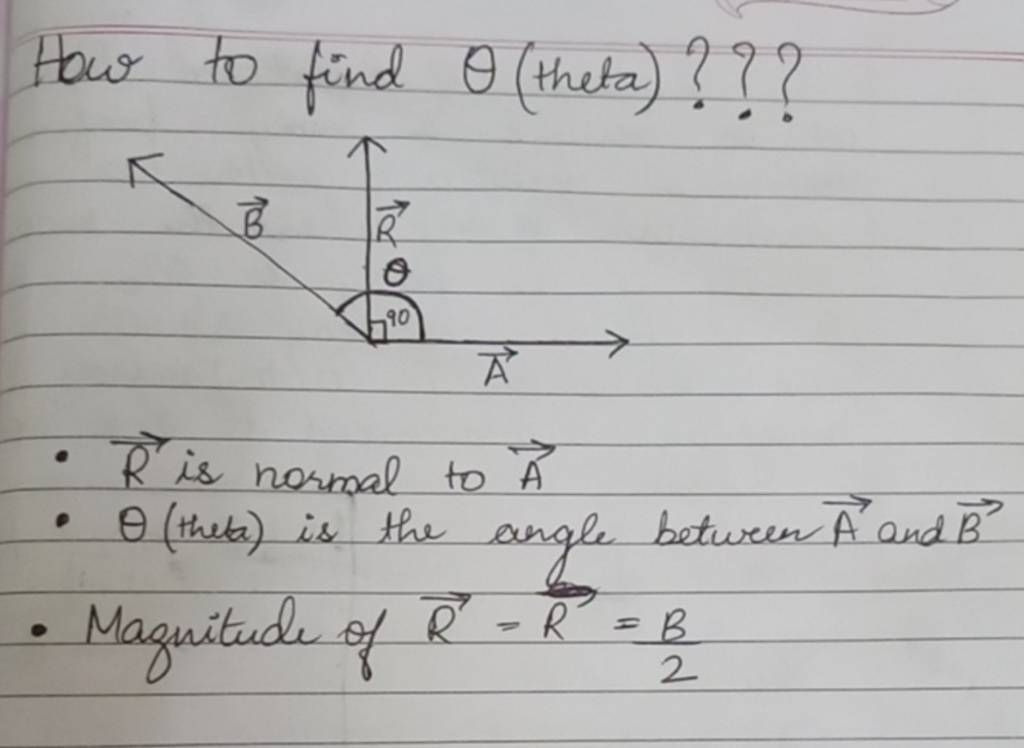 How to find θ (theta) ???
B⃗
R⃗
θ
90
A⃗
• R⃗ is normal to A⃗
• θ (theta) is the angle between A⃗ and B⃗
• Magnitude of R⃗ = R⃗ = B/2